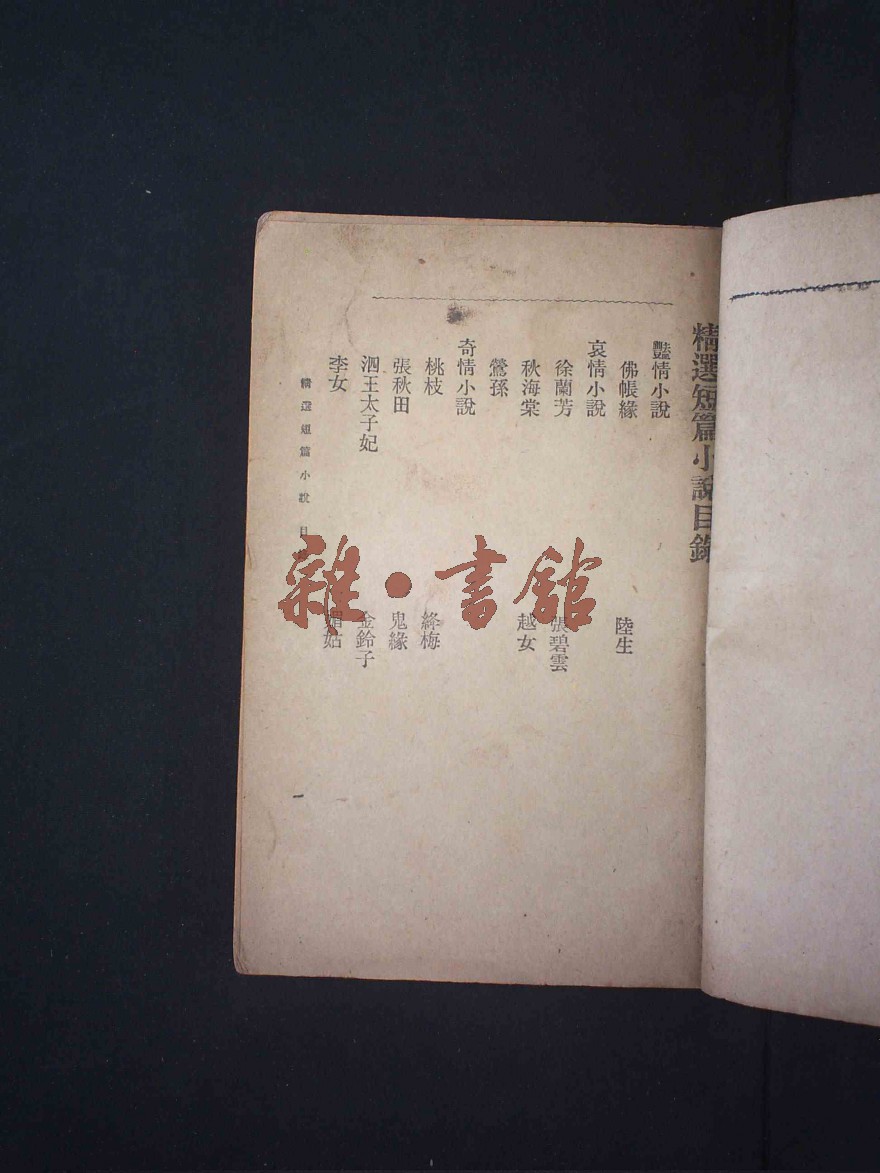 精選短篇小說目錄
豔情小說
佛帳緣 陸生
哀情小說
徐蘭芳 張碧雲
秋海棠 越女
鶯孫
奇情小說
桃枝 絳梅
張秋田 鬼緣
泗王太子妃 金鈴子
李女 姑
精選短篇小說 目
一
雜·書館